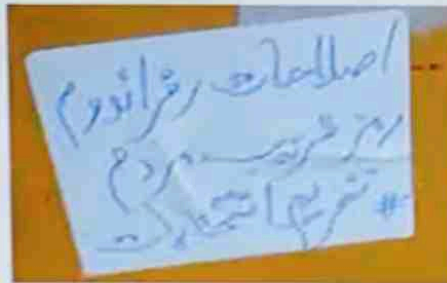 اصلاحات رفراندوم
رمز فریب مردم
# تحریم انتخابات